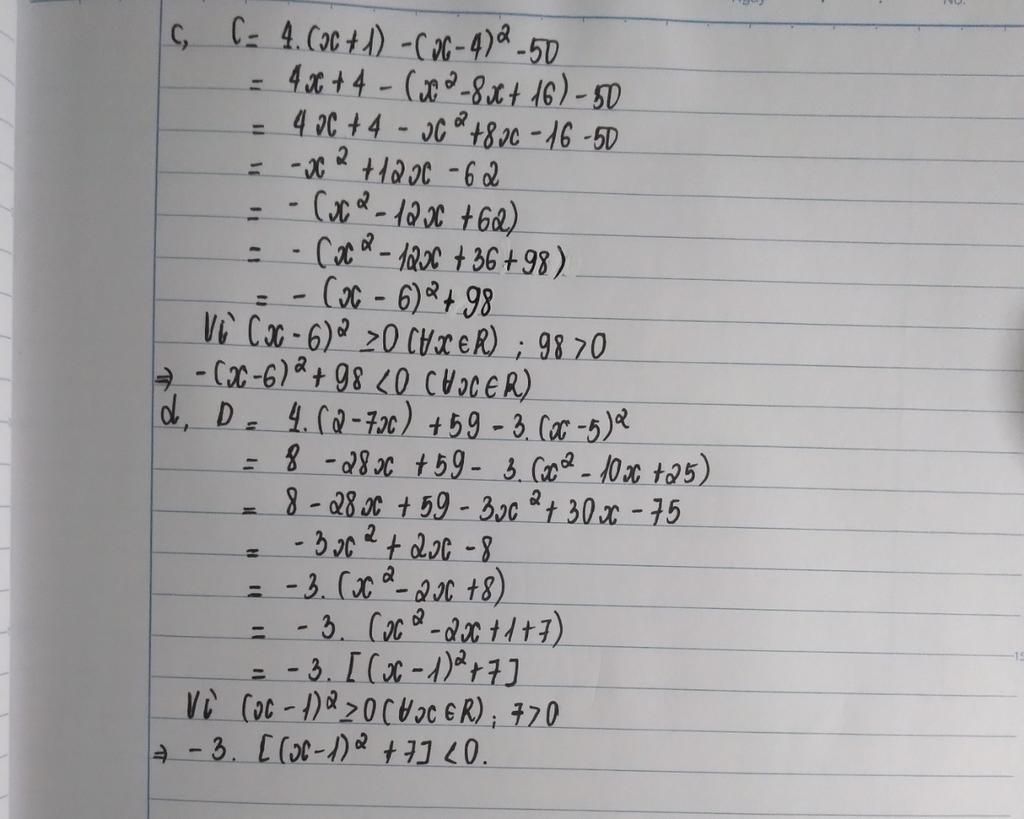 c, C = 4.(x+1) - (x-4)² - 50
= 4x + 4 - (x² - 8x + 16) - 50
= 4x + 4 - x² + 8x - 16 - 50
= -x² + 12x - 62
= - (x² - 12x + 62)
= - (x² - 12x + 36 + 98)
= - (x - 6)² + 98
Vì (x - 6)² ≥ 0 (∀x∈R) ; 98 > 0
⇒ -(x-6)² + 98 < 0 (∀x∈R)
d, D = 4.(2-7x) + 59 - 3.(x-5)²
= 8 - 28x + 59 - 3.(x² - 10x + 25)
= 8 - 28x + 59 - 3x² + 30x - 75
= -3x² + 2x - 8
= -3. (x² - 2x + 8)
= -3. (x² - 2x + 1 + 7)
= -3. [(x - 1)² + 7]
Vì (x - 1)² ≥ 0 (∀x∈R) ; 7 > 0
⇒ -3. [(x-1)² + 7] < 0.